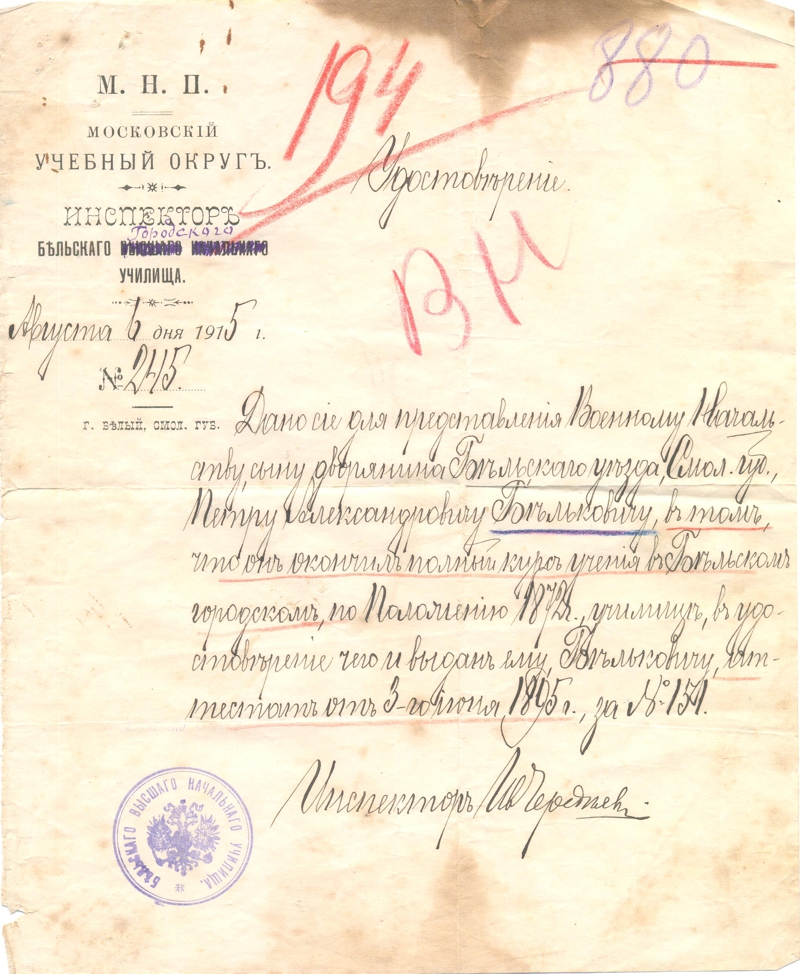 М. Н. П.
МОСКОВСКІЙ
УЧЕБНЫЙ ОКРУГЪ.
ИНСПЕКТОРЪ
Городскаго
БѢЛЬСКАГО ВЫСШАГО НАЧАЛЬНАГО
УЧИЛИЩА.
Августа 6 дня 1915 г.
№ 245.
г. БѢЛЫЙ, СМОЛ. ГУБ.
194
880
Удостовѣреніе.
ВН
Дано сіе для представленія Военному Началь-
ству, сыну дворянина Бѣльскаго уѣзда, Смол. губ.,
Петру Александровичу Бѣльковичу, въ томъ,
что онъ окончилъ полный курсъ ученія въ Бѣльскомъ
городскомъ, по Положенію 1872 г., училищѣ, въ удо-
стовѣреніе чего и выданъ ему, Бѣльковичу, ат-
тестатъ отъ 3-го іюня 1895 г., за № 151.
Инспекторъ
БѢЛЬСКАГО ВЫСШАГО НАЧАЛЬНАГО УЧИЛИЩА.